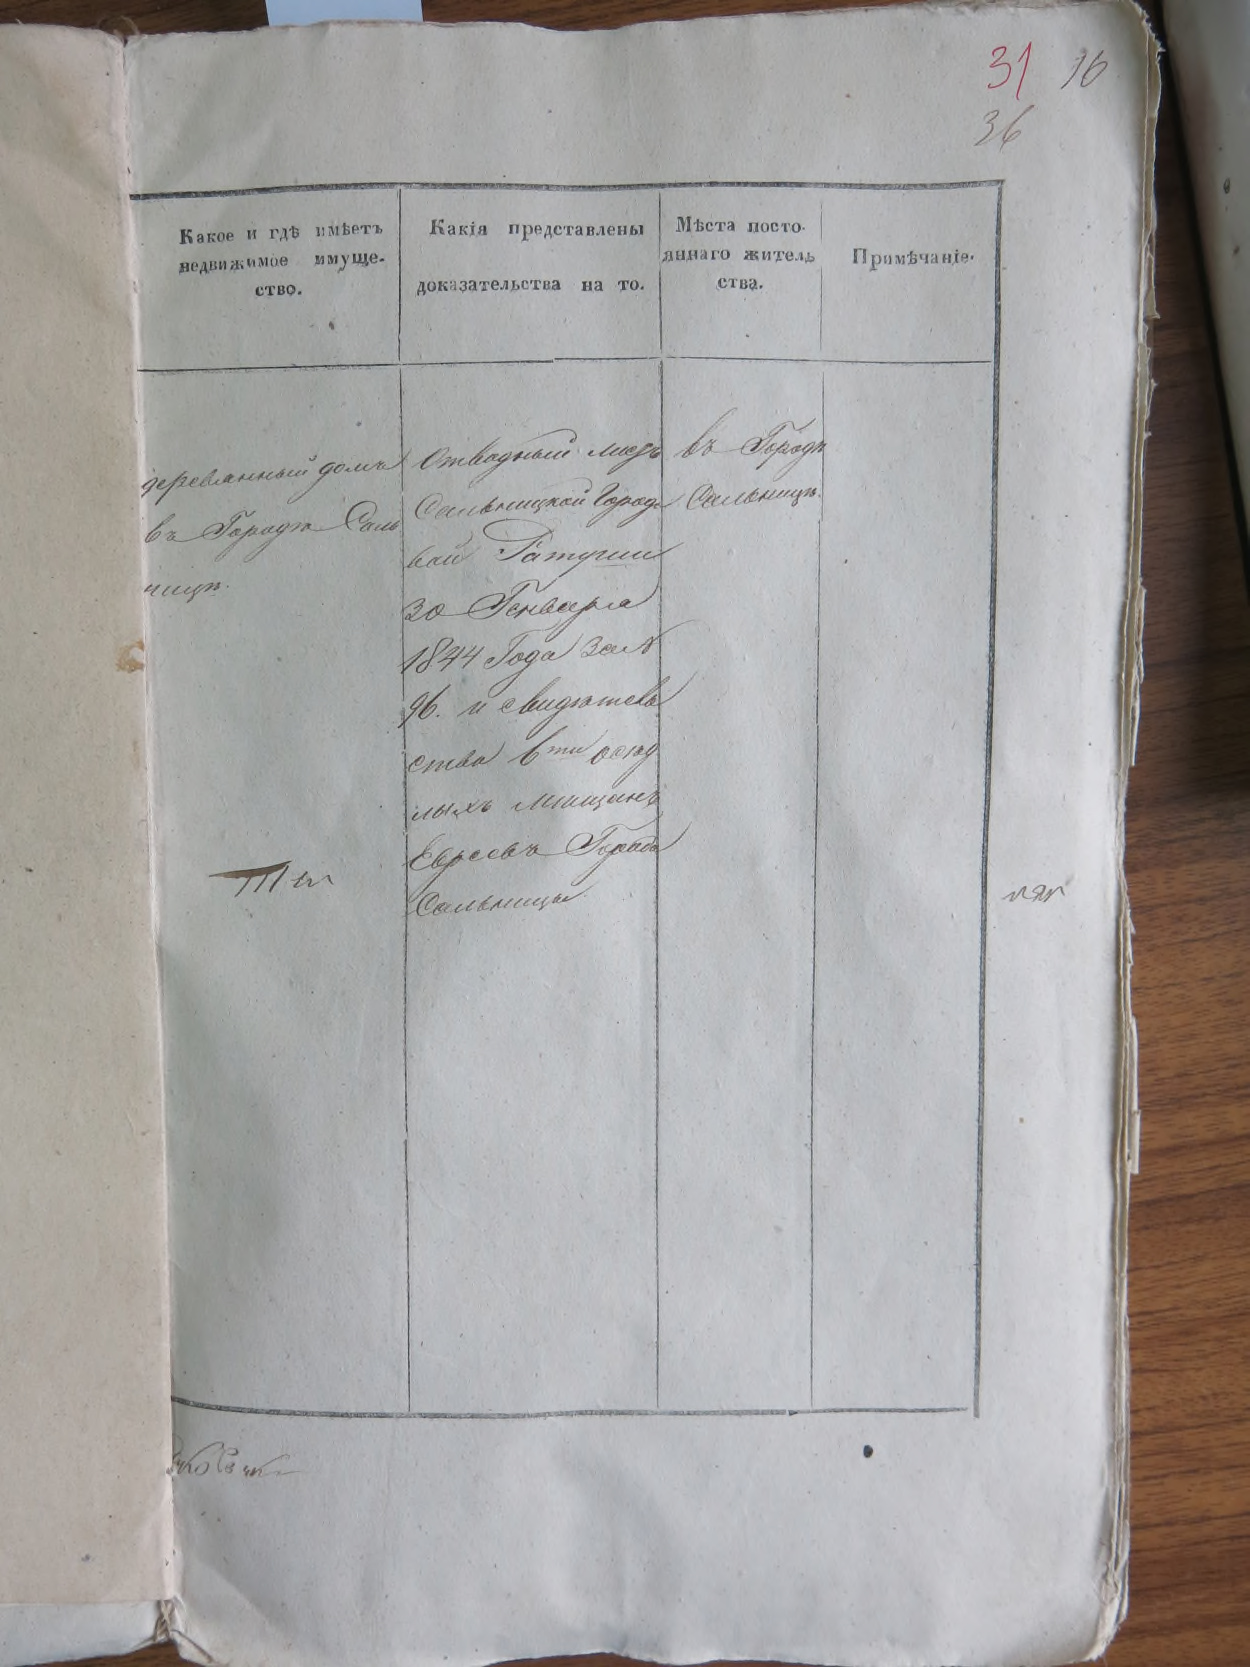 31 16
36
Какое и гдѣ имѣетъ
недвижимое имуще-
ство.
Какія представлены
доказательства на то.
Мѣста посто-
яннаго житель
ства.
Примѣчаніе.
деревянный домъ
въ Городѣ Саль
ницѣ.
Отводный листъ
Сальницкой Городо
вой Ратуши
30 Генваря
1844 Года за №
96. и свидѣтель
ства 6ти осѣд
лыхъ мѣщанъ
Евреевъ Города
Сальницы
въ Городѣ
Сальницѣ.